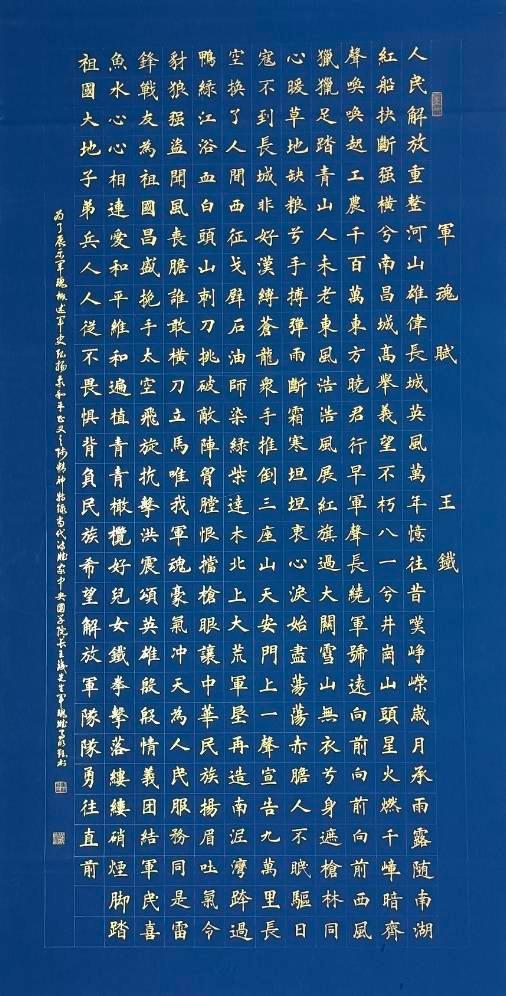 軍魂賦 王鐵
人民解放重整河山雄偉長城英風萬年憶往昔嘆崢嶸歲月承雨露随南湖
紅船抉斷强橫兮南昌城高舉義望不朽八一兮井崗山頭星火燃千嶂暗齊
聲喚喚起工農千百萬東方曉君行早軍聲長繞軍號遠向前向前向前西風
獵獵足踏青山人未老東風浩浩風展紅旗過大關雪山無衣兮身遮槍林同
心暖草地缺粮兮手搏彈雨斷霜寒坦坦衷心淚始盡蕩蕩赤膽人不眠驅日
寇不到長城非好漢縛蒼龍衆手推倒三座山天安門上一聲宣告九萬里長
空換了人間西征戈壁石油師染綠柴達木北上大荒軍墾再造南泥灣跨過
鴨綠江浴血白頭山刺刀挑破敵陣胷膛恨擋槍眼讓中華民族揚眉吐氣令
豺狼强盜聞風喪膽誰敢橫刀立馬唯我軍魂豪氣冲天為人民服務同是雷
鋒戰友為祖國昌盛挽手太空飛旋抗擊洪震頌英雄殷殷情義团結軍民喜
魚水心心相連愛和平維和遍植青青橄欖好兒女鐵拳擊落縷縷硝煙脚踏
祖國大地子弟兵人人從不畏懼背負民族希望解放軍隊隊勇往直前
为了展示军魂概述军史弘扬和平正义之师精神特录当代诗赋家中央国学院院长王铁先生军魂赋